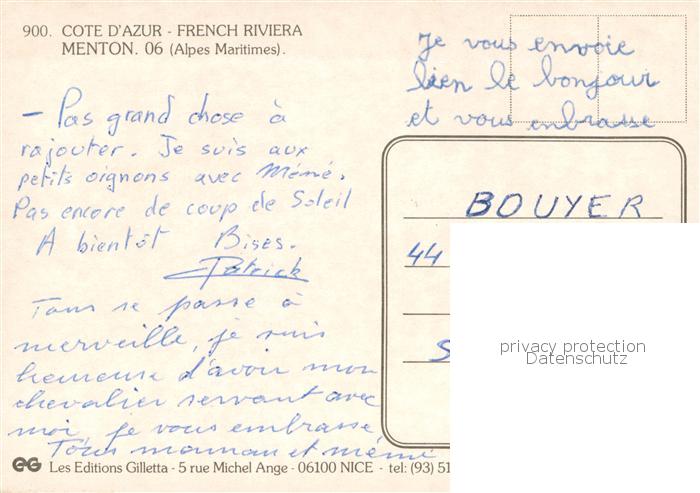 900. COTE D'AZUR - FRENCH RIVIERA
MENTON. 06 (Alpes Maritimes).
Je vous envoie
bien le bonjour
et vous enbrasse
- Pas grand chose à
rajouter. Je suis aux
petits oignons avec Mémé.
Pas encore de coup de Soleil
A bientôt Bises.
Patrick
Tous se passe à
merveille, je suis
heureuse d'avoir mon
chevalier servant avec
moi je vous embrasse
Tous maman et mémé
BOUYER
44
S
privacy protection
Datenschutz
EG Les Editions Gilletta - 5 rue Michel Ange - 06100 NICE - tel: (93) 51